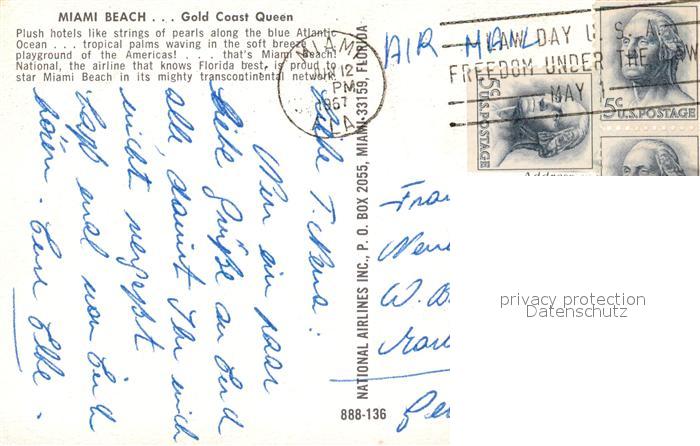 MIAMI BEACH . . . Gold Coast Queen
Plush hotels like strings of pearls along the blue Atlantic
Ocean . . . tropical palms waving in the soft breeze
playground of the Americas! . . . that's Miami Beach!
National, the airline that knows Florida best, is proud to
star Miami Beach in its mighty transcontinental network.
MIAMI
12
PM
1967
AIR MAIL
LAW DAY U.S.A.
FREEDOM UNDER THE LAW
MAY 1
5c
U.S. POSTAGE
5c
U.S. POSTAGE
Liebe T. Nena!
Nun ein paar
liebe Grüße an Euch
alle, damit Ihr mich
nicht vergesst
Lasst mal von Euch
hören. Eure Elke.
NATIONAL AIRLINES INC., P. O. BOX 2055, MIAMI 33159, FLORIDA
888-136
W. B
privacy protection
Datenschutz